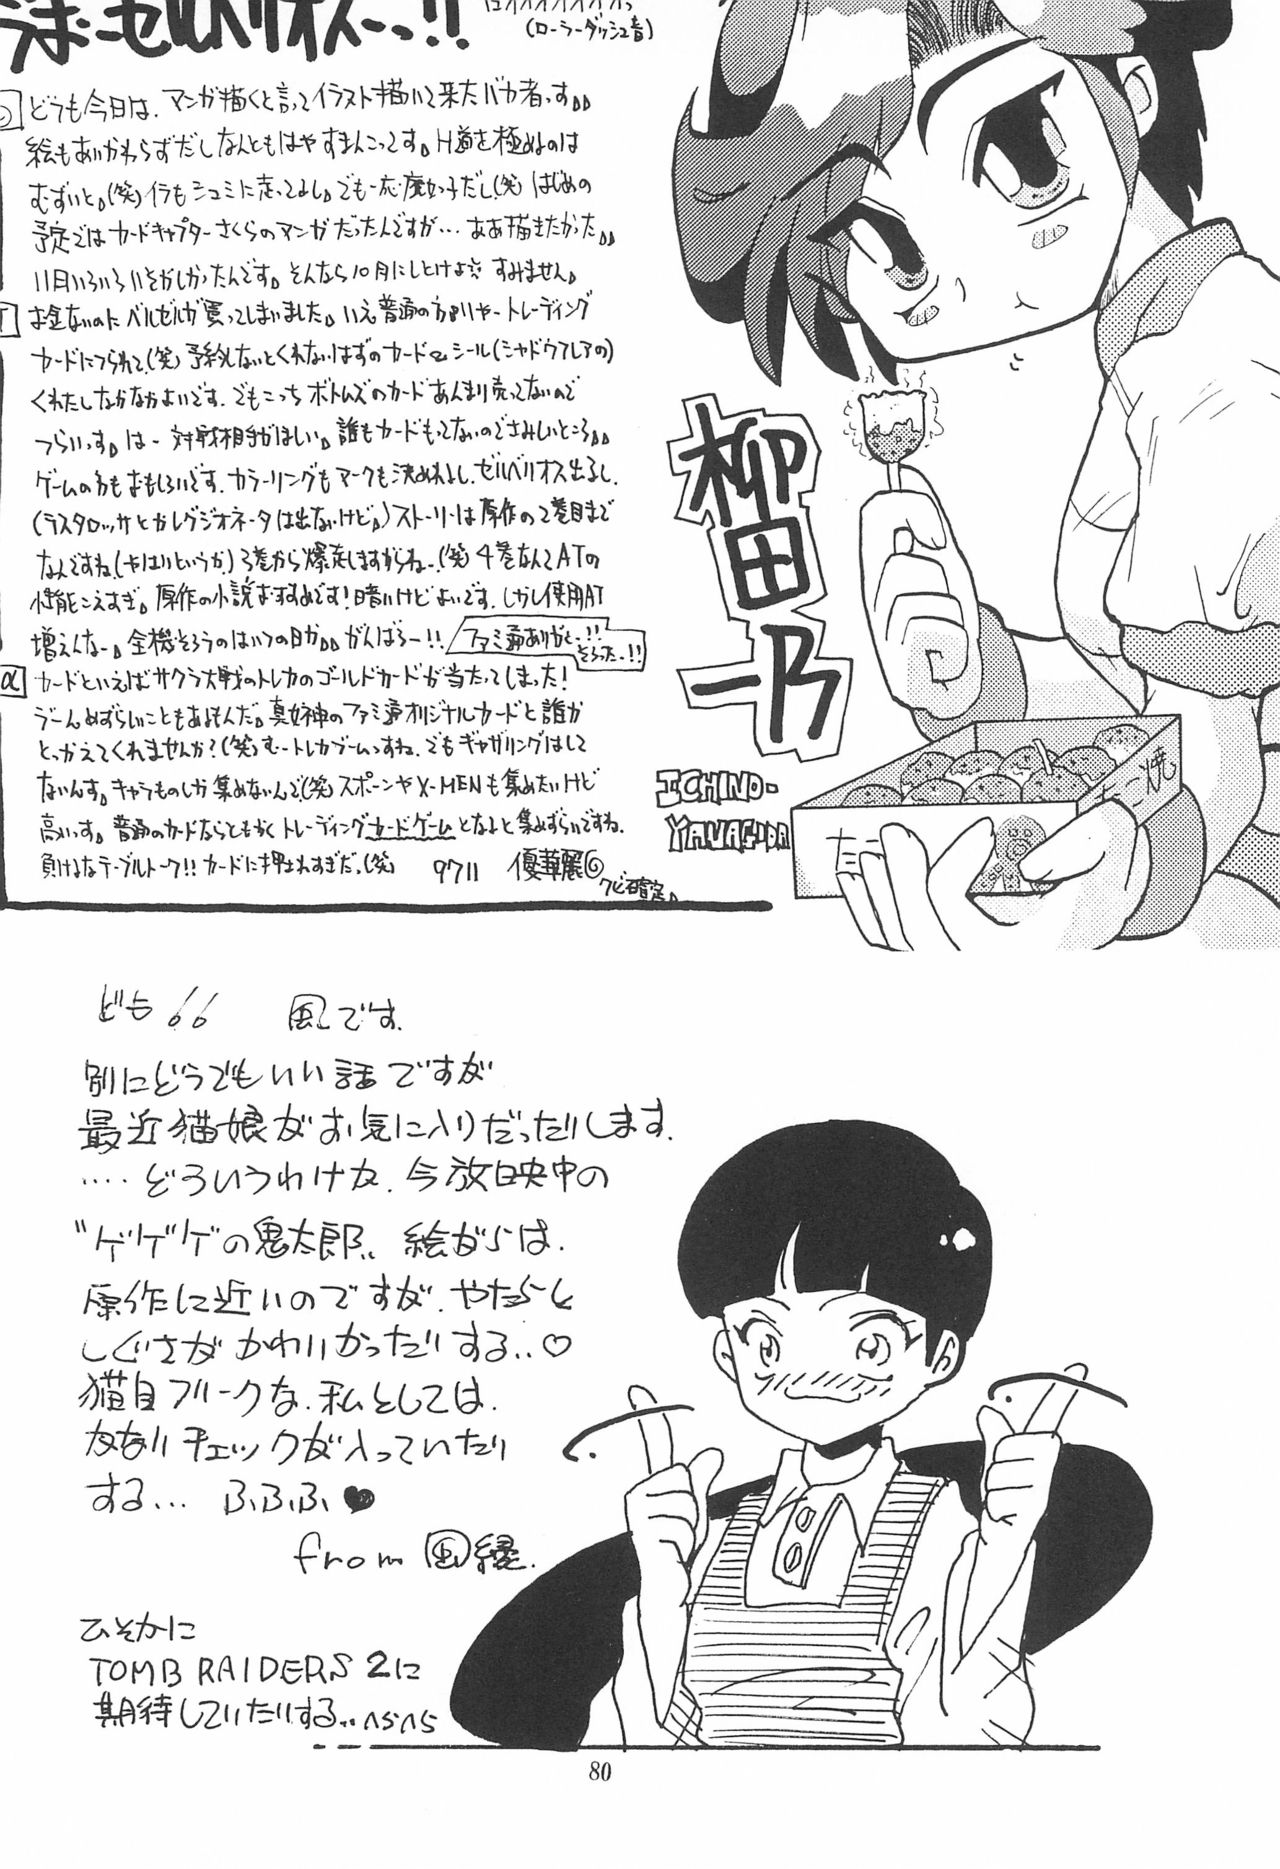 うおーゼルベリオスーっ!!
(ローラーダッシュ音)
どうも今日は、マンガ描くと言ってイラスト描いて来たバカ者っす。
絵もあいかわらずだしなんともはやすまんこってす。H道を極めるのは
むずいと。(笑)イラもシュミに走ってるし。でも一応魔女っ子だし(笑)はじめの
予定ではカードキャプターさくらのマンガだったんですが…ああ描きたかった。
11月いろいろいそがしかったんです。そんなら10月にしとけよ すみません。
お金ないのにベルゼルガ買ってしまいました。いえ普通の方 トレーディング
カードにつられて(笑)予約しないとくれないはずのカードとシール(シャドウフレアの)
くれたしなかなかよいです。でもこっちボトムズのカードあんまり売ってないので
つらいっす。はー対戦相手がほしい。誰もカードもってないのでさみしいところ。
ゲームの方もおもしろいです。カラーリングもマークも決めれるし、ゼルベリオス出るし、
(ラスタロッサとかレグジオネータは出ないけど。)ストーリーは原作の2巻目まで
なんですね(やはりというか)3巻から爆走しますからねー(笑)4巻なんてATの
性能こえすぎ。原作の小説おすすめです!暗いけどよいです。しかし使用AT
増えんなー。全機そろうのはいつの日か。がんばろー!!
ファミ通ありがとー!!
そろったー!!
カードといえばサクラ大戦のトレカのゴールドカードが当たってしまった!
うーんめずらしいこともあるもんだ。真女神のファミ通オリジナルカードと誰か
とっかえてくれませんか?(笑)むートレカブームっすね。でもギャザリングはして
ないんす。キャラものしか集めないんで(笑)スポーンやX-MENも集めたいけど
高いっす。普通のカードならともかくトレーディングカードゲームとなると集めずらいですね。
負けるなテーブルトーク!!カードに押されすぎだ。(笑)
9711 優華麗
クビ確定。
柳田一乃
ICHINO-
YANAGIDA
焼
ども!! 風です。
別にどうでもいい話ですが
最近猫娘がお気に入りだったりします。
‥‥どういうわけか、今放映中の
"ゲゲゲの鬼太郎"絵がらは、
原作に近いのですが、やたらと
しぐさがかわいかったりする‥♡
猫目フリークな、私としては、
かなりチェックが入っていたり
する… ふふふふ♥
from 風縁.
ひそかに
TOMB RAIDERS 2に
期待していたりする‥へらへら
80